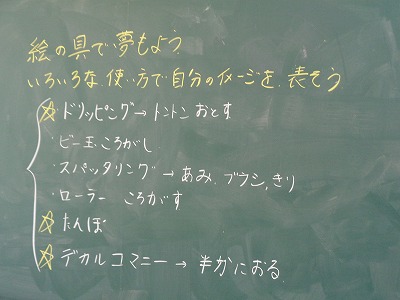 絵の具で夢もよう
いろいろな使い方で自分のイメージを表そう
☆ドリッピング→トントンおとす
・ビー玉ころがし
・スパッタリング→あみ、ブラシ、きり
・ローラー ころがす
☆たんぽ
☆デカルコマニー→半分におる